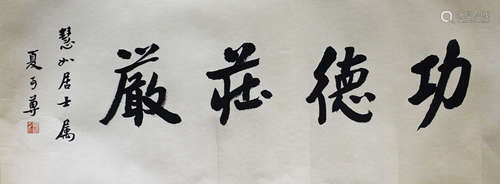 功德莊嚴
慧如居士属
夏丏尊